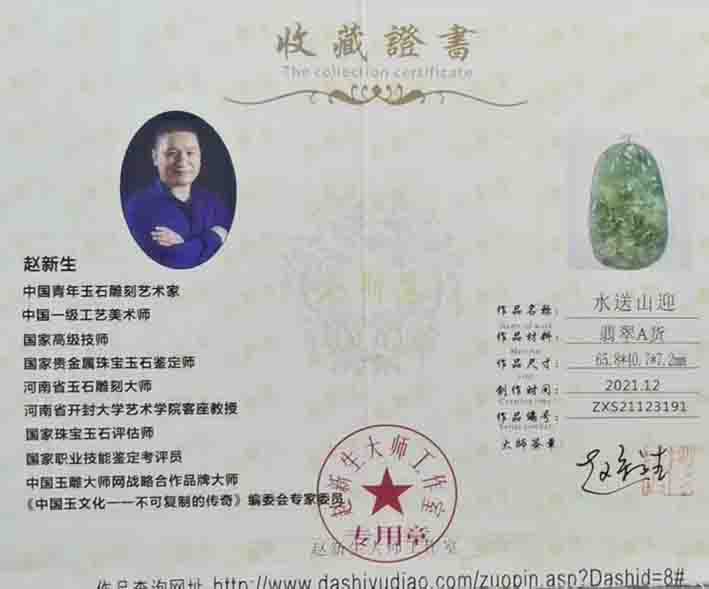 收藏證書
The collection certificate
赵新生
中国青年玉石雕刻艺术家
中国一级工艺美术师
国家高级技师
国家贵金属珠宝玉石鉴定师
河南省玉石雕刻大师
河南省开封大学艺术学院客座教授
国家珠宝玉石评估师
国家职业技能鉴定考评员
中国玉雕大师网战略合作品牌大师
《中国玉文化一一不可复制的传奇》编委会专家委员
作品名称: 水送山迎
Name of work
作品材料: 翡翠A货
Material
作品尺寸: 65.8*40.7*7.2mm
创作时间: 2021.12
作品编号: ZXS21123191
大师签章:
赵新生
赵新生大师工作室
专用章
赵新生大师工作室
作品查询网址 http://www.dashiyudiao.com/zuopin.asp?Dashid=8#